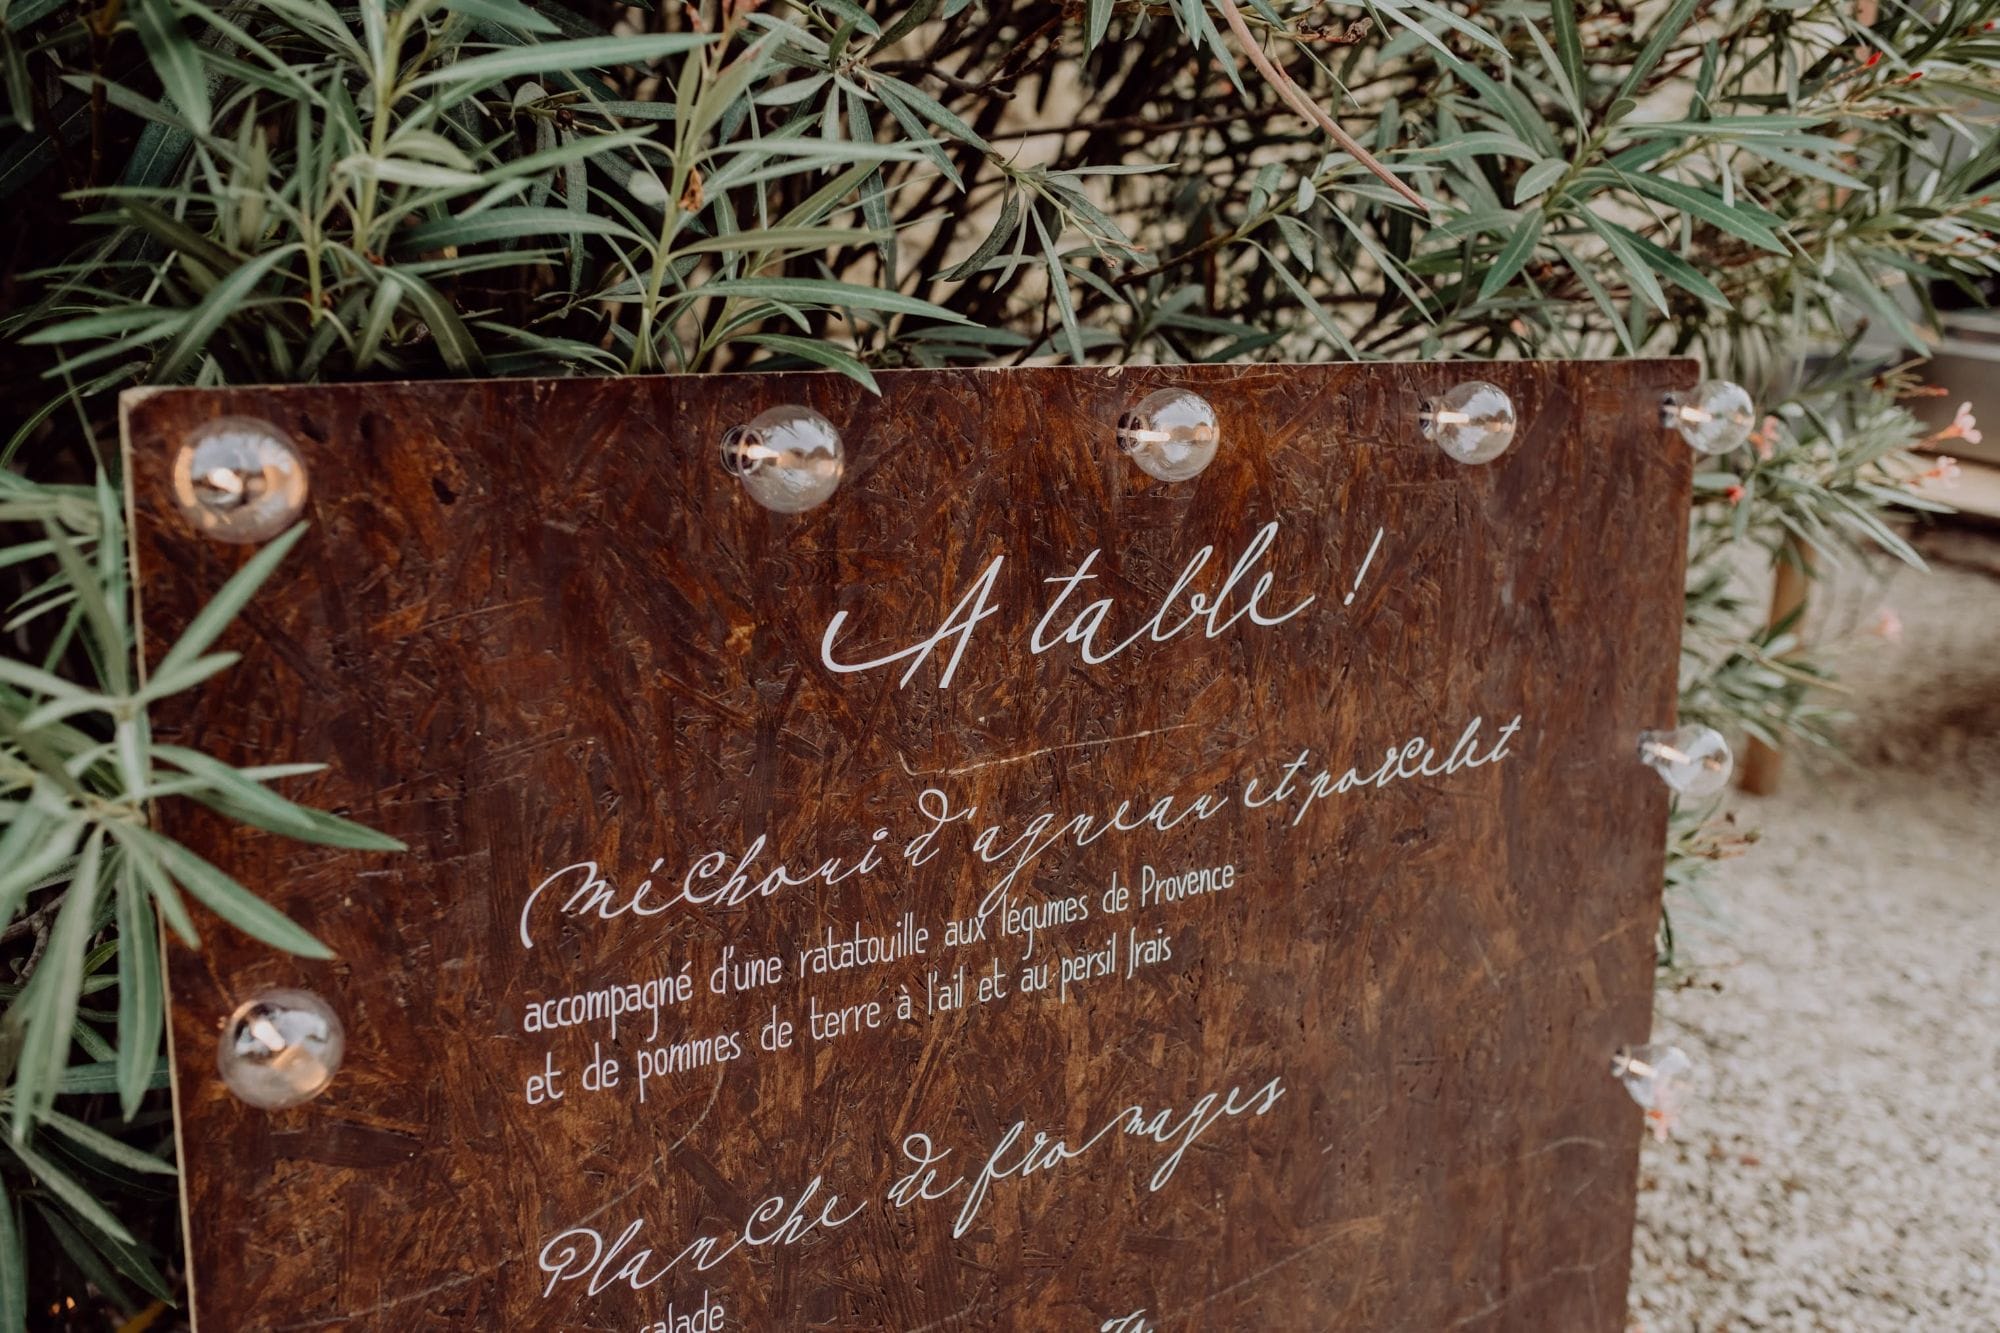 A table !
Méchoui d'agneau et porcelet
accompagné d'une ratatouille aux légumes de Provence
et de pommes de terre à l'ail et au persil frais
Planche de fromages
salade